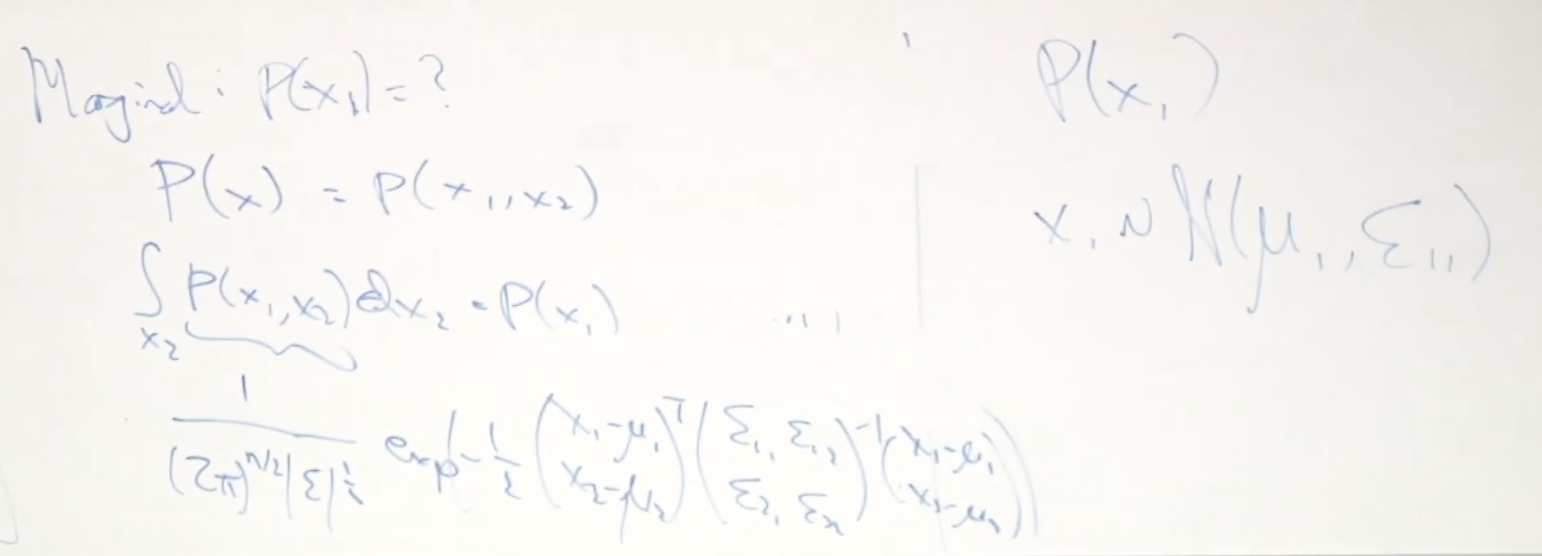 Marginal: P(x₁) = ?
P(x) = P(x₁, x₂)
∫_{x₂} P(x₁, x₂) dx₂ = P(x₁) ...
1 / ((2π)^{n/2} |Σ|^{1/2}) exp(-1/2 (x₁-μ₁ x₂-μ₂)^T (Σ₁₁ Σ₁₂ Σ₂₁ Σ₂₂)^{-1} (x₁-μ₁ x₂-μ₂))
P(x₁)
x₁ ~ N(μ₁, Σ₁₁)